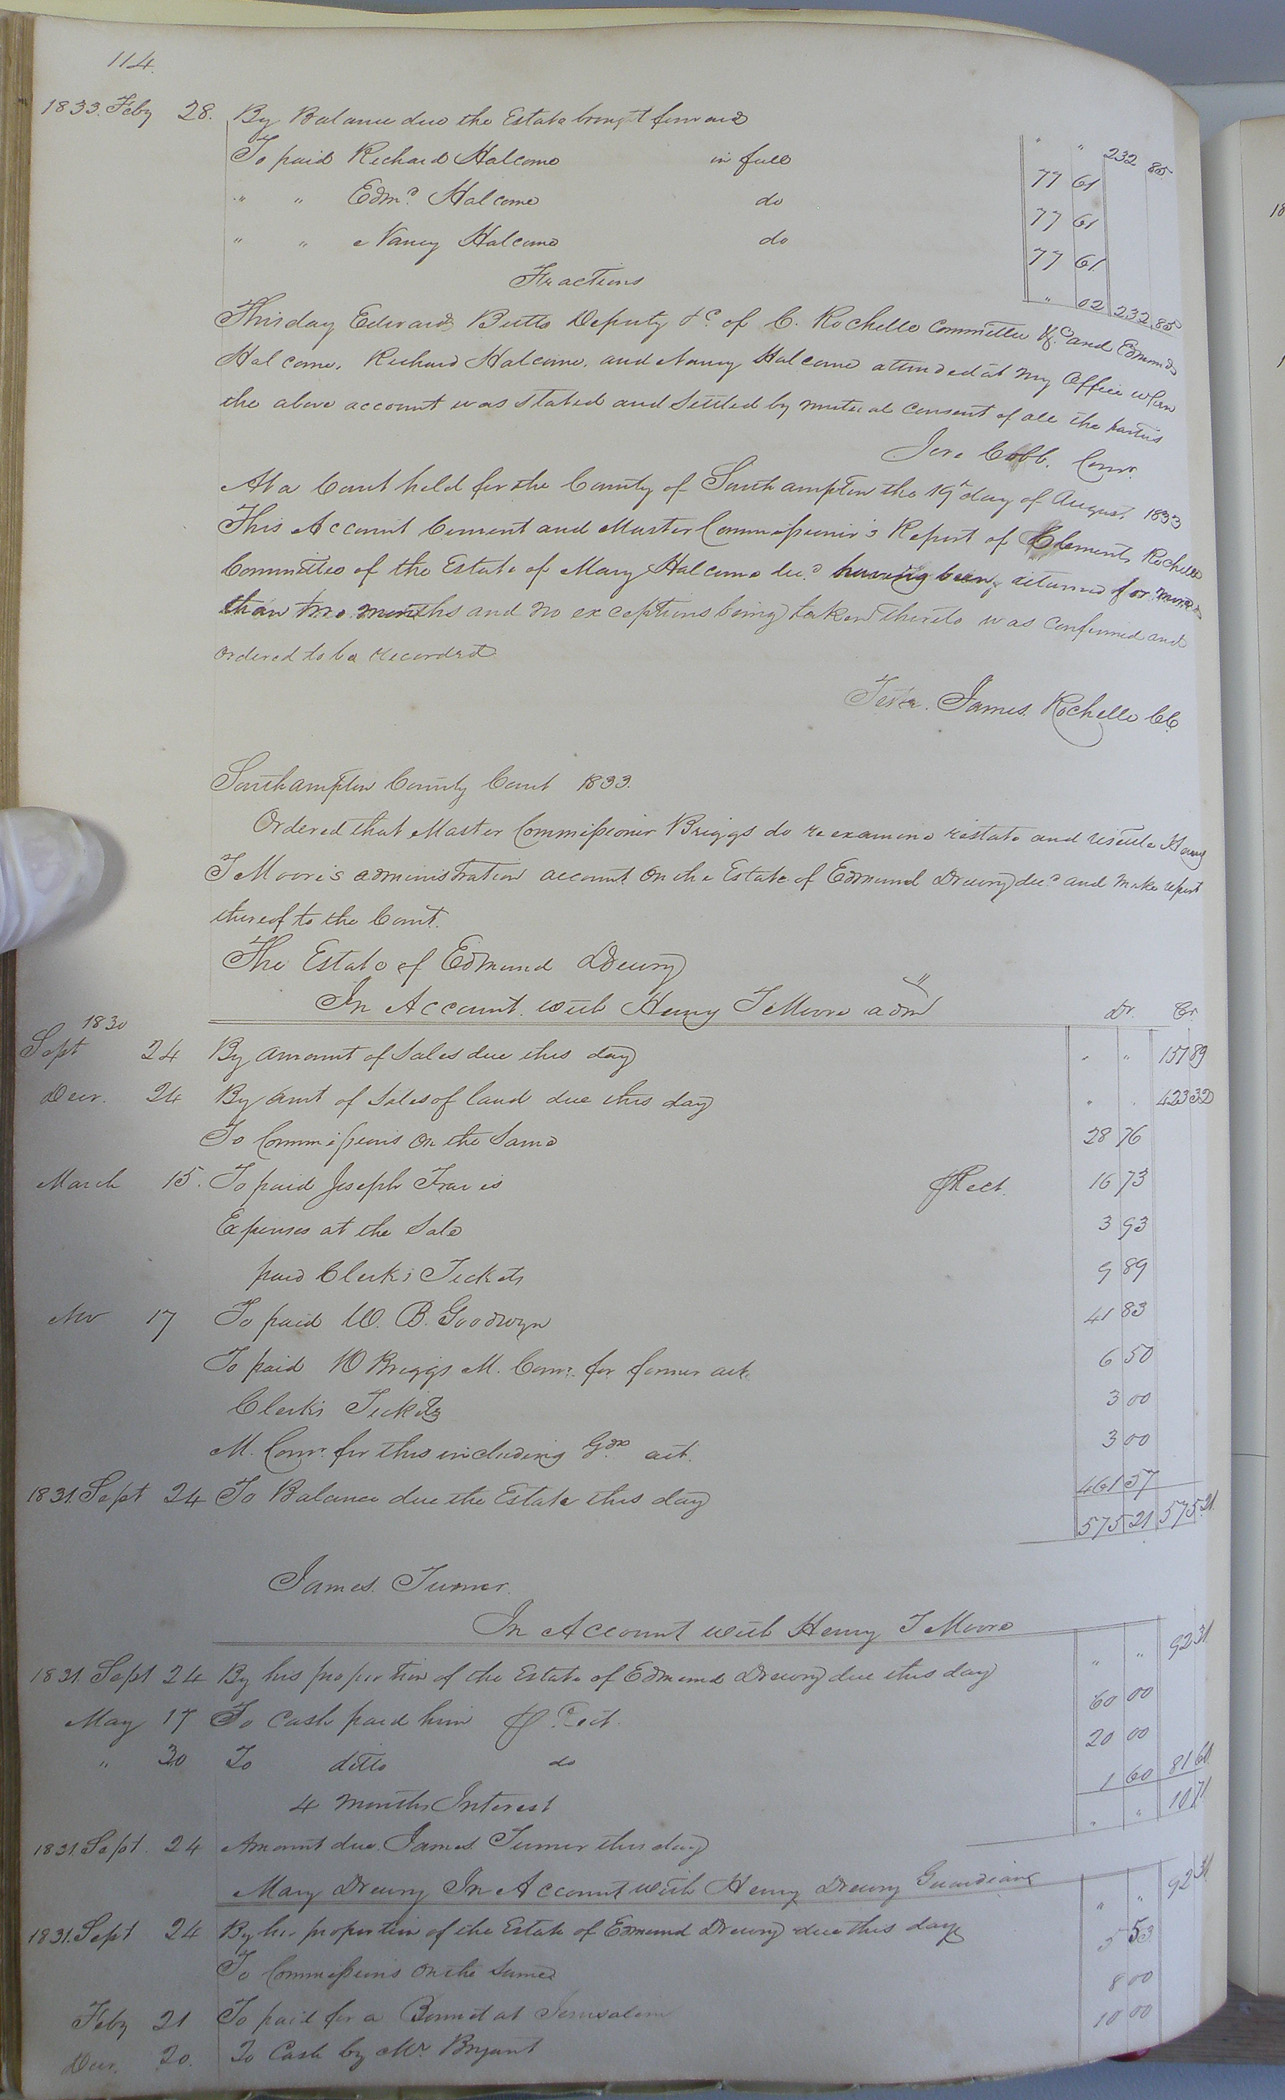 114.
1833. Feby 28. By Balance due the Estate brought forward " " 232 85
To paid Richard Halcome in full 77 61
" " Edmd. Halcome do 77 61
" " Nancy Halcome do 77 61
Fractions " 02 232 85
This day Edward Butts Deputy &c of C. Rochelle Committee &c and Edmunds
Halcome, Richard Halcome, and Nancy Halcome attended at my office when
the above account was stated and settled by mutual consent of all the parties
Jere Cobb. Comr.
At a Court held for the County of Southampton the 19th day of August 1833
This Account Current and Master Commissioner's Report of Clements Rochelle
Committee of the Estate of Mary Halcome decd having been returned for more
than two months and no exceptions being taken thereto was confirmed and
ordered to be recorded
Teste. James Rochelle CC.
Southampton County Court 1833.
Ordered that Master Commissioner Briggs do re examine restate and resettle Henry
T Moore's administration account on the Estate of Edmund Drewry decd and make report
thereof to the Court.
The Estate of Edmund Drewry
In Account with Henry T Moore adm
Dr. Cr
1830
Sept 24 By amount of Sales due this day " " 151 89
Decr. 24 By amt of Sales of land due this day " " 423 32
To Commissions on the Same 28 76
March 15. To paid Joseph Travis Rect. 16 73
Expenses at the Sale 3 93
paid Clerk's Tickets 9 89
Nov 17 To paid W. B. Goodwyn 41 83
To paid W Briggs M. Comr. for former act. 6 50
Clerk's Tickets 3 00
M. Comr. for this including Gdn. act. 3 00
1831. Sept 24 To Balance due the Estate this day 461 57
575 21 575 21
James Turner
In Account with Henry T Moore
1831. Sept 24 By his proportion of the Estate of Edmund Drewry due this day " " 92 31
May 17 To Cash paid him rect. 60 00
" 30 To ditto do 20 00
4 months Interest 1 60 81 60
1831. Sept. 24 Amount due James Turner this day " " 10 71
Mary Drewry In Account with Henry Drewry Guardian
1831. Sept 24 By her proportion of the Estate of Edmund Drewry due this day " " 92 31
To Commissions on the Same 5 53
Feby 21 To paid for a Bonnet at Jerusalem 8 00
Decr. 20. To Cash by Mr. Bryant 10 00